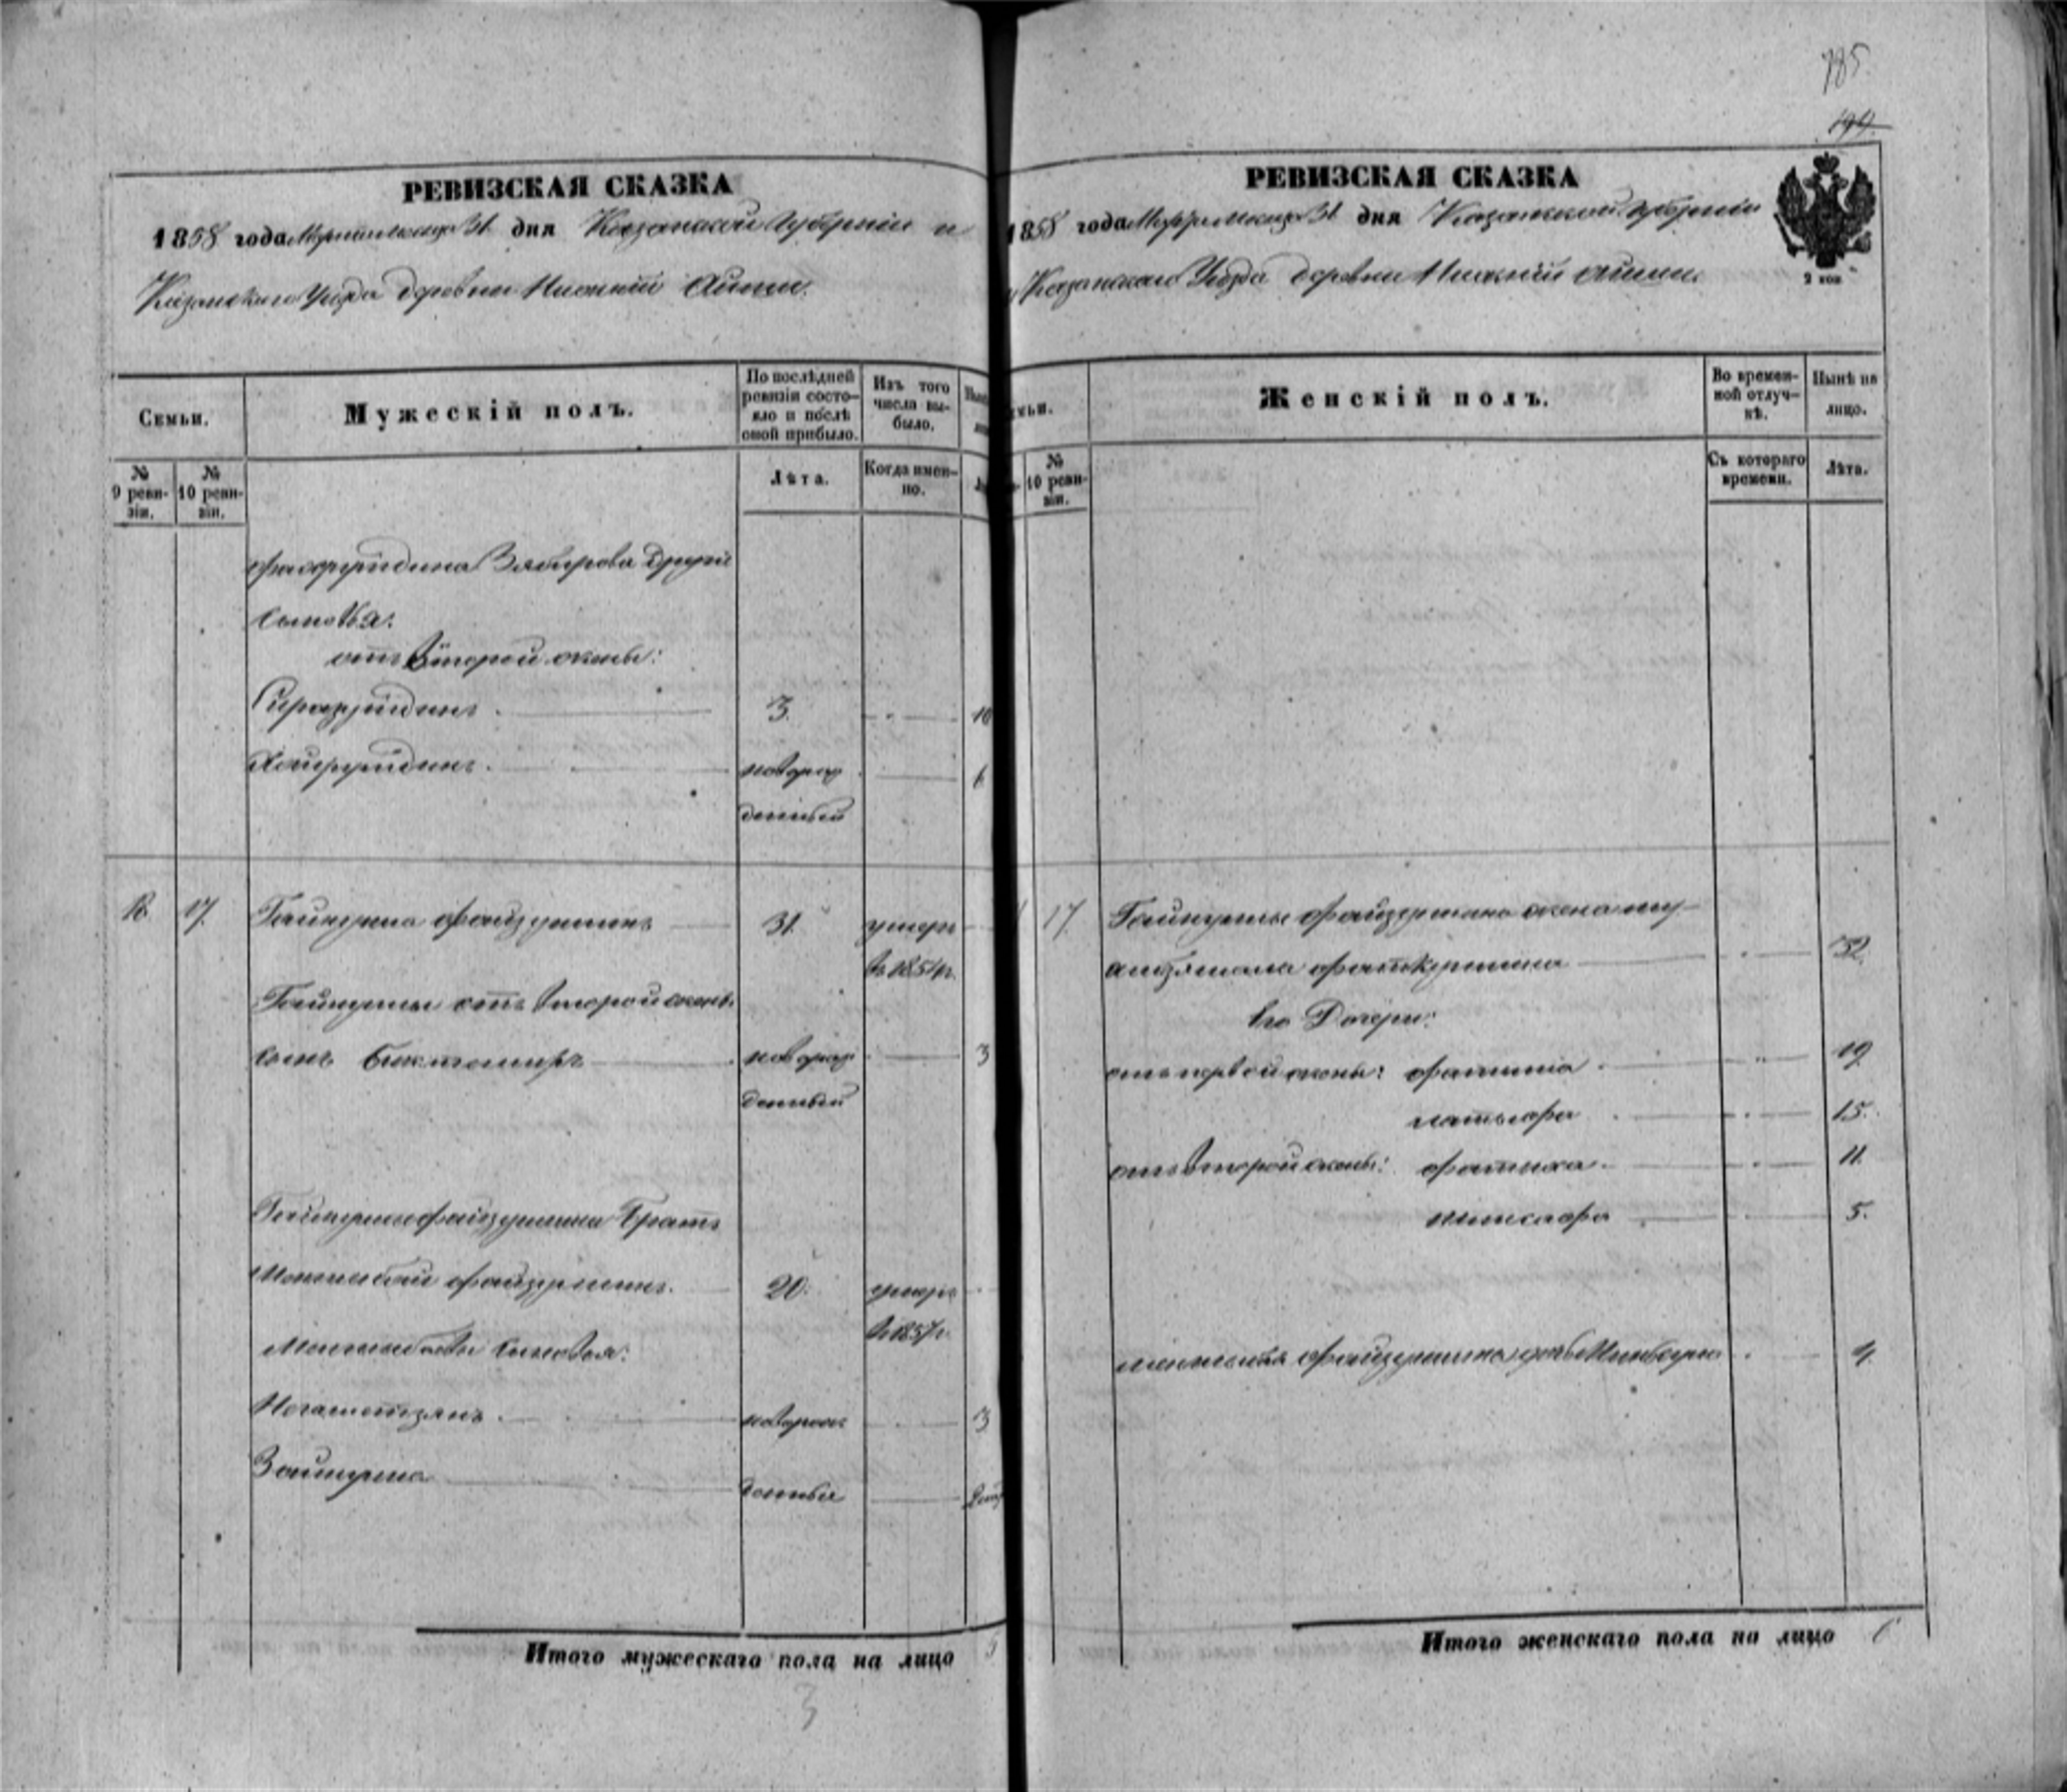 785
199.
РЕВИЗСКАЯ СКАЗКА
1858 года Марта месяца 31 дня Казанской Губернии и
Казанского Уезда деревни Нижний Аиши.
Семьи.
Мужескій полъ.
По послѣдней ревизіи состояло и послѣ оной прибыло.
Изъ того числа выбыло.
№ 9 ревизіи.
№ 10 ревизіи.
Лѣта.
Когда именно.
Фахрутдина Зябирова другіе
сыновья:
отъ второй жены:
Сиразутдинъ 3. 10
Хайрутдинъ новорож 6
денный
16 17. Гайнулла Файзуллинъ 31. умеръ
въ 1854 г.
Гайнуллы отъ второй жены
сынъ Биктимиръ новорож 3
денный
Гайнуллы Файзуллина братъ
Файзуллинъ. 20. умеръ
въ 1857 г.
сыновья:
Негаметзянъ новорож 3
Зайнулла денные
Итого мужескаго пола на лицо 5
3
РЕВИЗСКАЯ СКАЗКА
1858 года Марта месяца 31 дня Казанской Губерніи
и Казанскаго Уезда деревни Нижній Аиши.
2 коп
Женскій полъ.
Во временной отлучкѣ.
Нынѣ на лицо.
№ 10 ревизіи.
Съ котораго времени.
Лѣта.
17. Гайнуллы Файзуллина жена
32.
Его дочери:
отъ первой жены: Фатима 19.
15.
отъ второй жены: Фатиха 11.
5.
Файзуллина дочь 4.
Итого женскаго пола на лицо 6